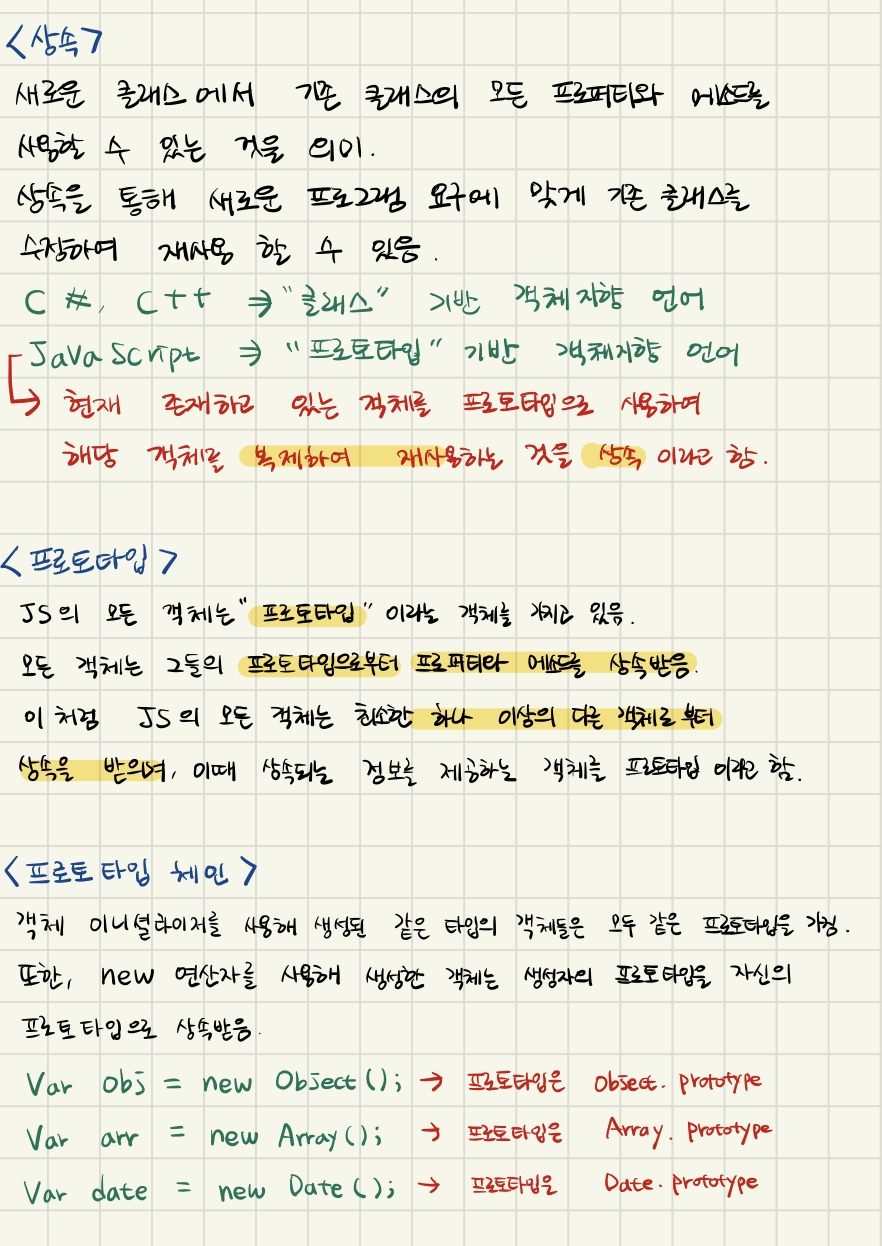 <상속>
새로운 클래스에서 기존 클래스의 모든 프로퍼티와 메소드를
사용할 수 있는 것을 의미.
상속을 통해 새로운 프로그램 요구에 맞게 기존 클래스를
수정하여 재사용 할 수 있음.
C #, C++ ⇒ "클래스" 기반 객체지향 언어
JavaScript ⇒ "프로토타입" 기반 객체지향 언어
↳ 현재 존재하고 있는 객체를 프로토타입으로 사용하여
해당 객체를 복제하여 재사용하는 것을 상속 이라고 함.
<프로토타입>
JS의 모든 객체는 "프로토타입" 이라는 객체를 가지고 있음.
모든 객체는 그들의 프로토타입으로부터 프로퍼티와 메소드를 상속받음.
이처럼 JS의 모든 객체는 최소한 하나 이상의 다른 객체로부터
상속을 받으며, 이때 상속되는 정보를 제공하는 객체를 프로토타입 이라고 함.
<프로토타입 체인>
객체 이니셜라이저를 사용해 생성된 같은 타입의 객체들은 모두 같은 프로토타입을 가짐.
또한, new 연산자를 사용해 생성한 객체는 생성자의 프로토타입을 자신의
프로토타입으로 상속받음.
Var obj = new Object(); → 프로토타입은 Object. prototype
Var arr = new Array(); → 프로토타입은 Array. prototype
Var date = new Date(); → 프로토타입은 Date. prototype